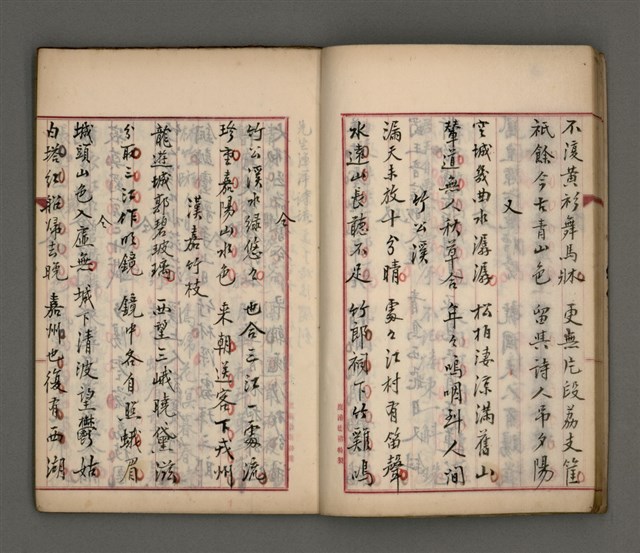 不復黃衫舞馬牀　更無片段荔支筐
祇餘今古青山色　留與詩人弔夕陽
又
空城幾曲水潺潺　松柏淒涼滿舊山
輦道無人秋草合　年々嗚咽到人間
竹公溪
漏天未放十分晴　處々江村有笛聲
水遠山長聽不足　竹郎祠下竹雞鳴
仝
竹公溪水綠悠々　也合三江一處流
珍重嘉陽山水色　來朝送客下戎州
漢嘉竹枝
龍遊城郭碧玻璃　西望三峨曉黛滋
分取三江作明鏡　鏡中各自照蛾眉
仝
城頭山色入虛無　城下清波望鬱姑
白塔紅船歸去晚　嘉州也復有西湖